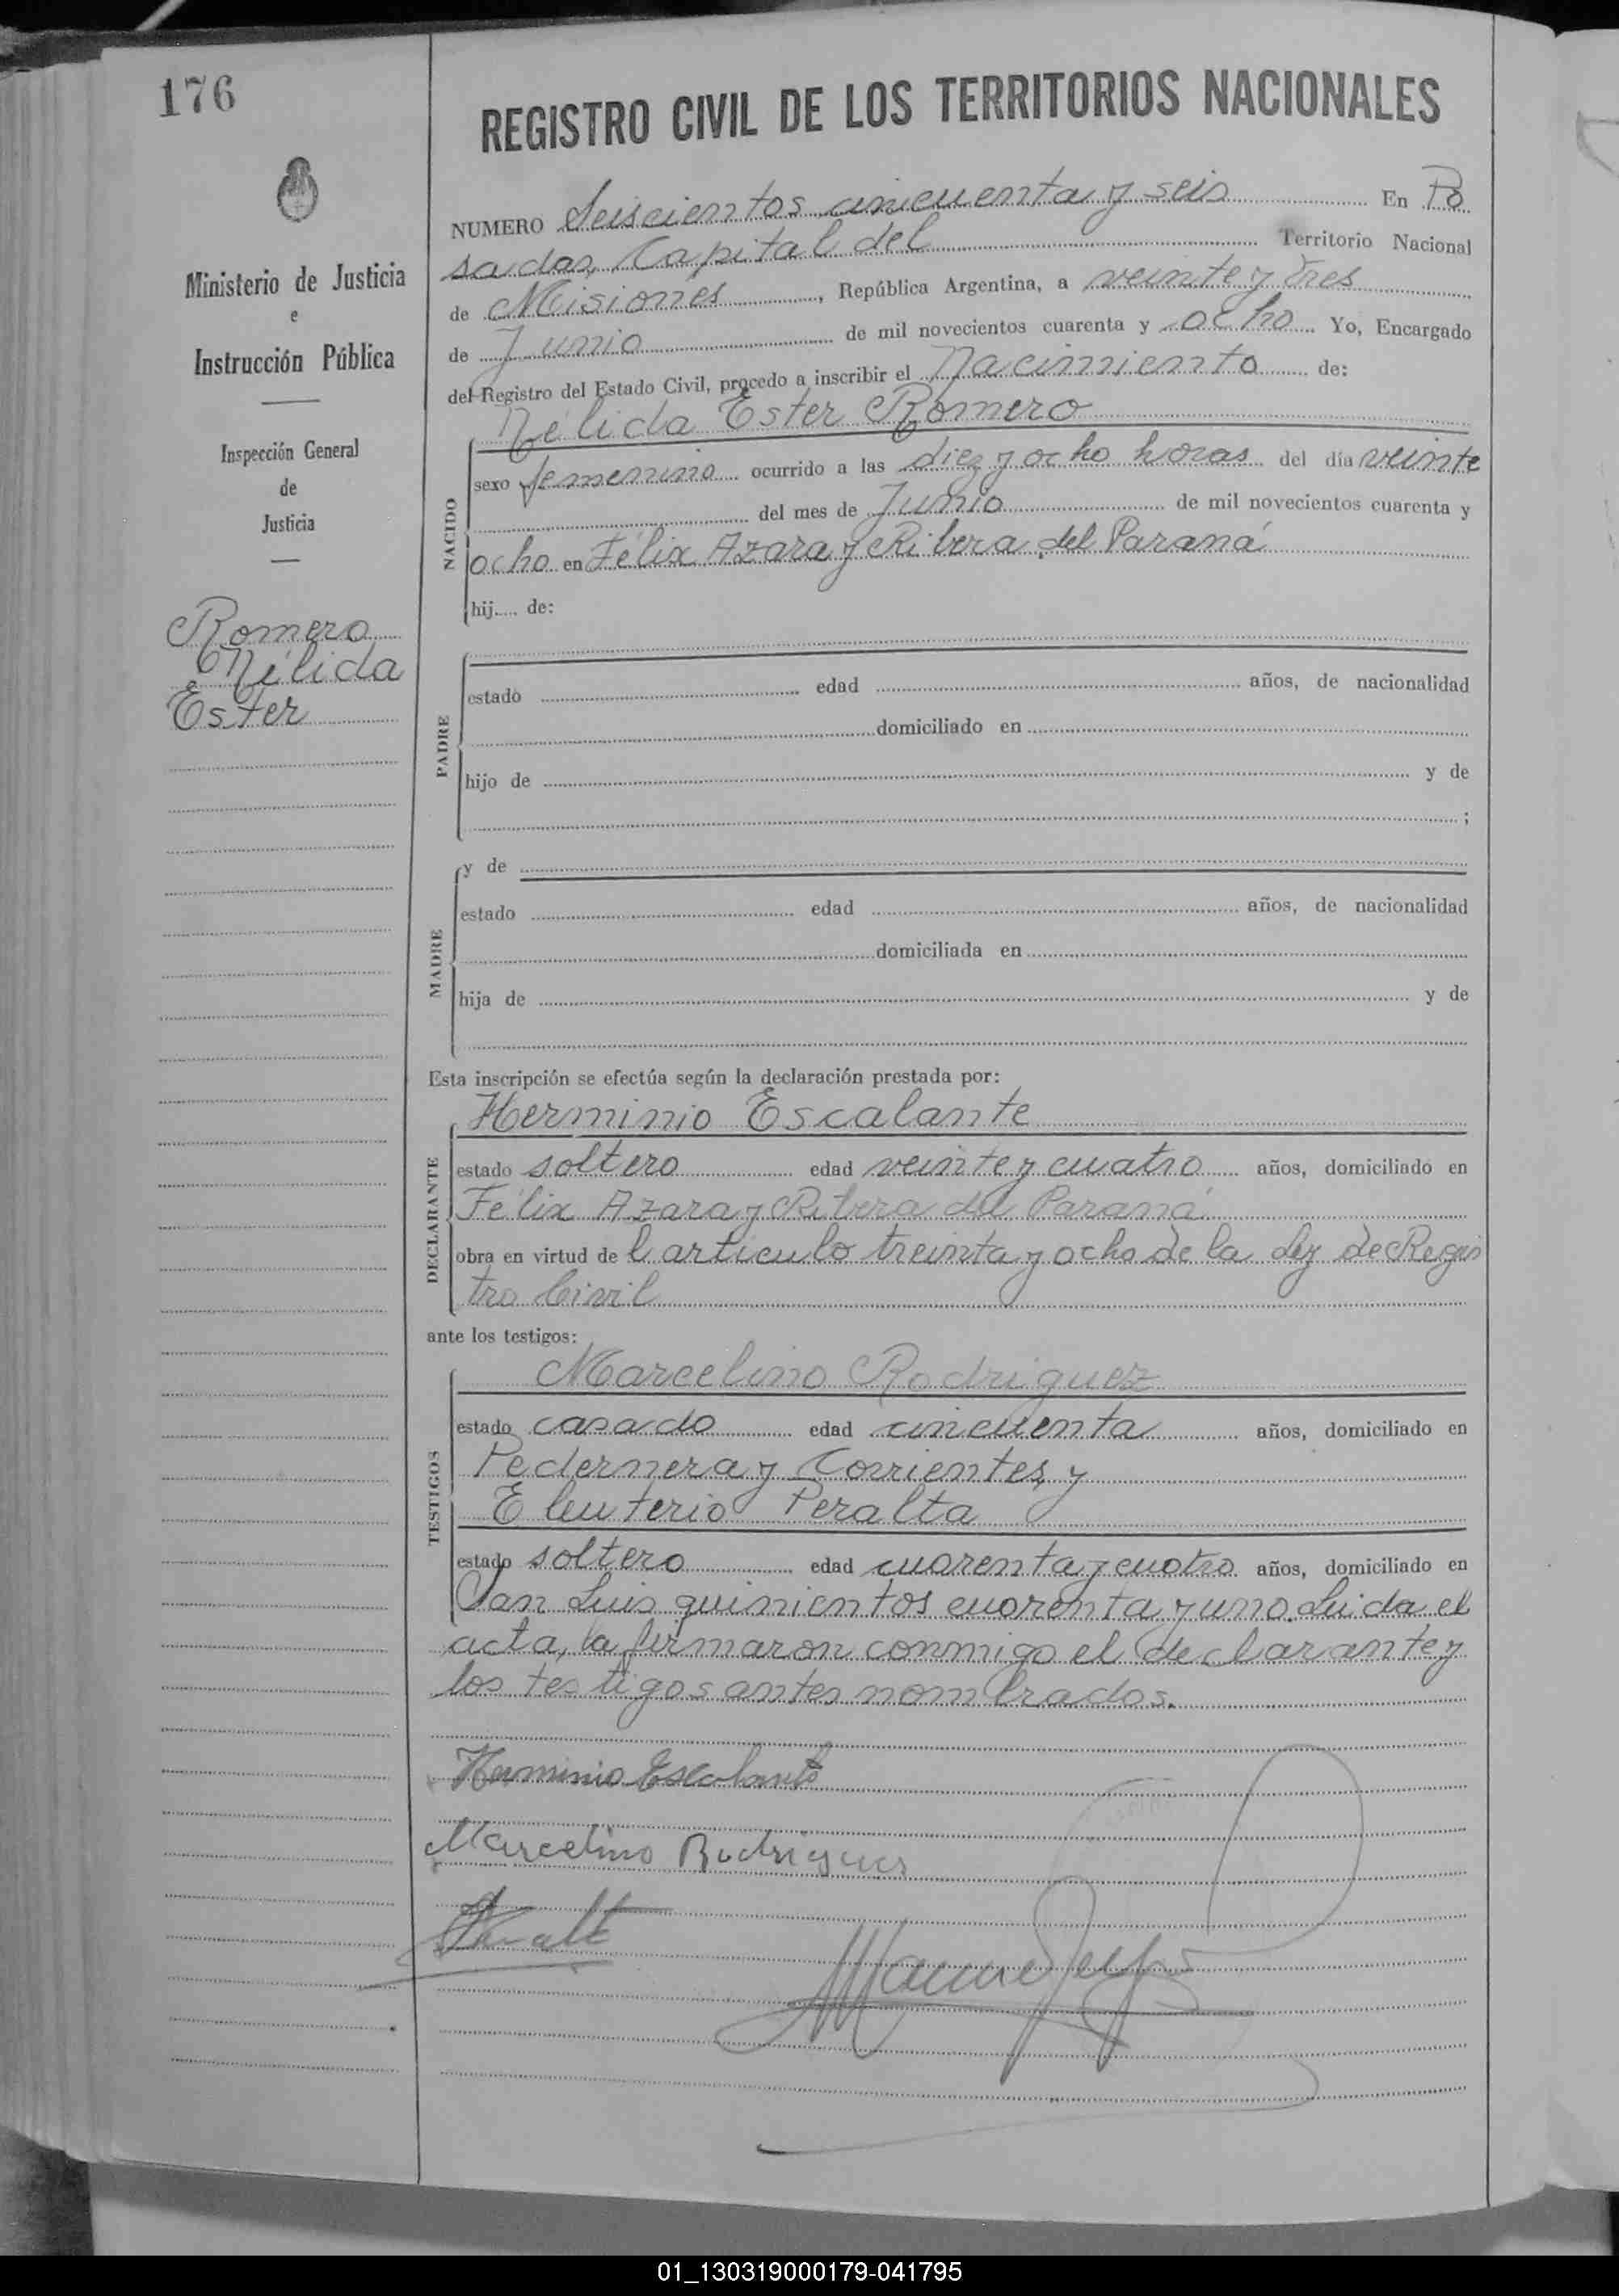 176
REGISTRO CIVIL DE LOS TERRITORIOS NACIONALES
Ministerio de Justicia
e
Instrucción Pública
Inspección General
de
Justicia
Romero
Nélida
Ester
NUMERO Seiscientos cincuenta y seis En Po
sadas, Capital del Territorio Nacional
de Misiones, República Argentina, a veinte y tres
de Junio de mil novecientos cuarenta y ocho Yo, Encargado
del Registro del Estado Civil, procedo a inscribir el nacimiento de:
NACIDO
Nélida Ester Romero
sexo femenino ocurrido a las diez y ocho horas del día veinte
del mes de Junio de mil novecientos cuarenta y
ocho en Félix Azara y Ribera del Paraná
hij.... de:
PADRE
estado edad años, de nacionalidad
domiciliado en
hijo de y de
;
MADRE
y de
estado edad años, de nacionalidad
domiciliada en
hija de y de
Esta inscripción se efectúa según la declaración prestada por:
DECLARANTE
Herminio Escalante
estado soltero edad veinte y cuatro años, domiciliado en
Félix Azara y Ribera del Paraná
obra en virtud de l artículo treinta y ocho de la Ley de Regis
tro Civil
ante los testigos:
TESTIGOS
Marcelino Rodriguez
estado casado edad cincuenta años, domiciliado en
Pedernera y Corrientes, y
Eleuterio Peralta
estado soltero edad cuarenta y cuatro años, domiciliado en
San Luis quinientos cuarenta y uno. Leida el
acta, la firmaron conmigo el declarante y
los testigos antes nombrados.
Herminio Escalante
Marcelino Rodriguez
01_130319000179-041795